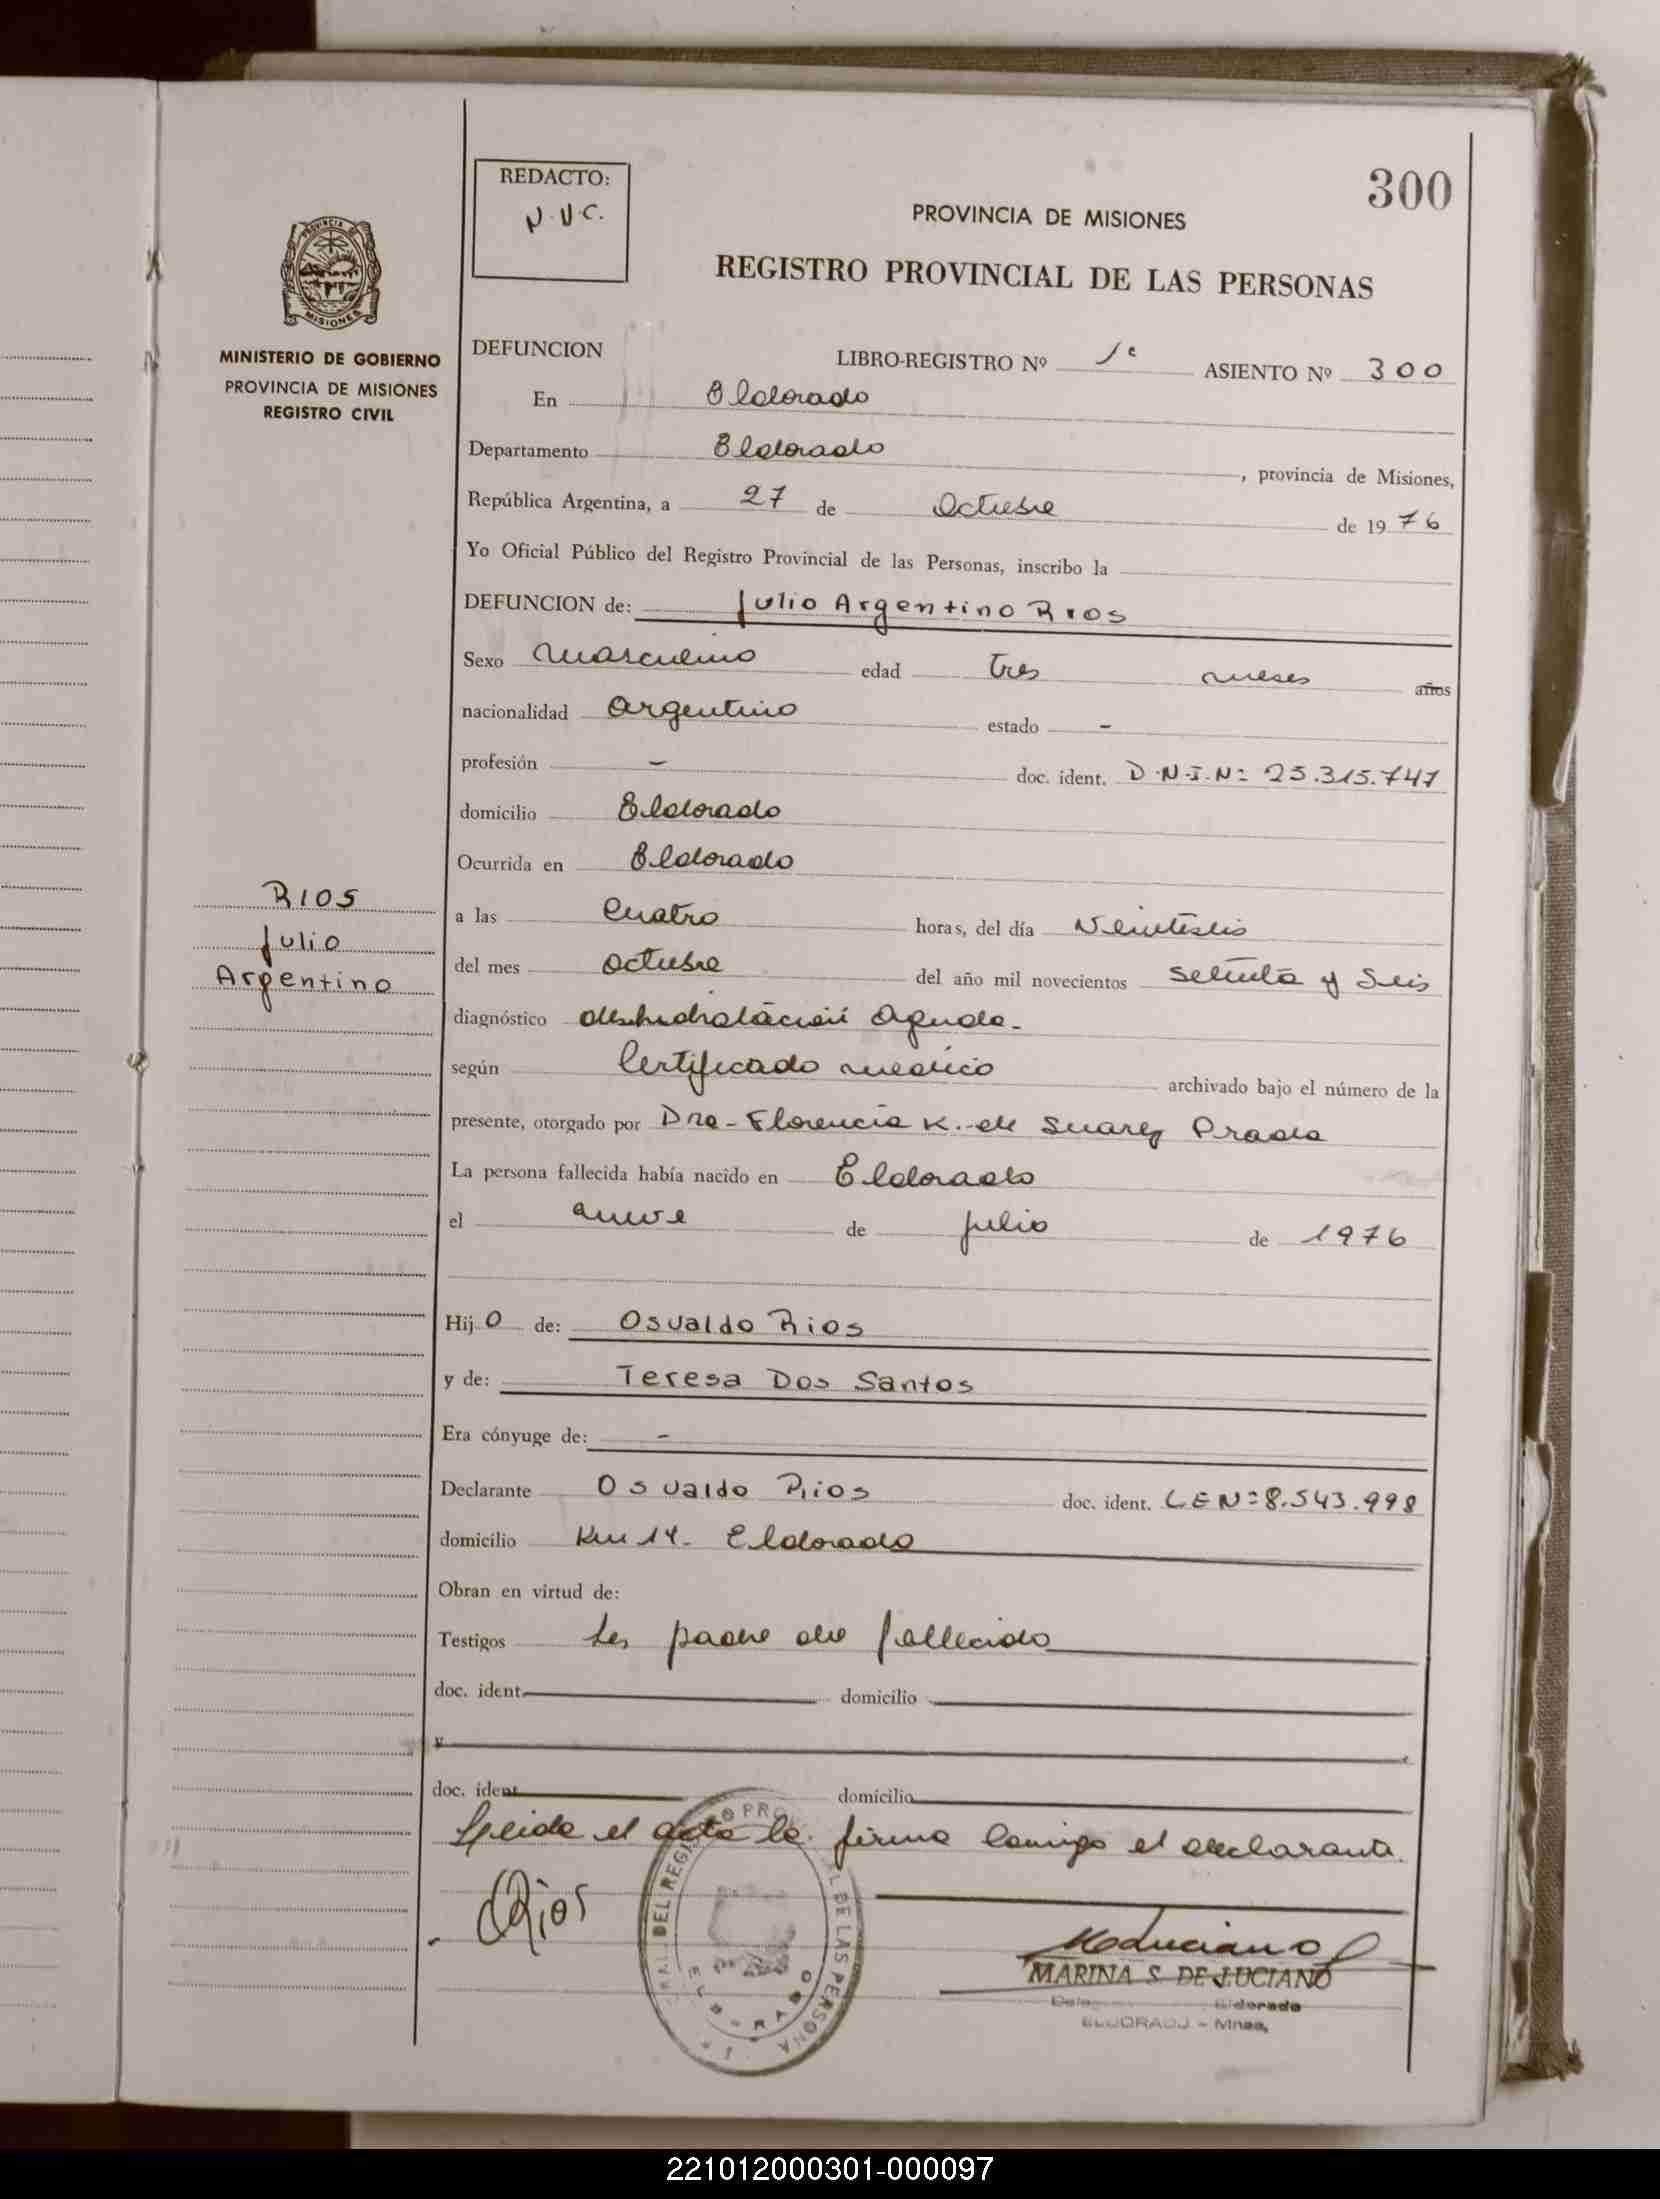 300
REDACTO:
N.V.C.
PROVINCIA DE MISIONES
REGISTRO PROVINCIAL DE LAS PERSONAS
PROVINCIA DE
MISIONES
MINISTERIO DE GOBIERNO
PROVINCIA DE MISIONES
REGISTRO CIVIL
DEFUNCION LIBRO-REGISTRO Nº 1º ASIENTO Nº 300
En Eldorado
Departamento Eldorado, provincia de Misiones,
República Argentina, a 27 de Octubre de 1976
Yo Oficial Público del Registro Provincial de las Personas, inscribo la
DEFUNCION de: Julio Argentino Rios
Sexo Masculino edad tres meses años
nacionalidad argentino estado -
profesión - doc. ident. D.N.I.Nº 25.315.747
domicilio Eldorado
Ocurrida en Eldorado
RIOS
Julio
Argentino
a las cuatro horas, del día Veintiseis
del mes octubre del año mil novecientos setenta y Seis
diagnóstico deshidratación aguda.-
según Certificado medico archivado bajo el número de la
presente, otorgado por Dra- Florencia K. de Suarez Prada
La persona fallecida había nacido en Eldorado
el nueve de julio de 1976
Hijo de: Osvaldo Rios
y de: Teresa Dos Santos
Era cónyuge de: -
Declarante Osvaldo Rios doc. ident. L E Nº 8.543.998
domicilio Km 14. Eldorado
Obran en virtud de:
Testigos Ser padre del fallecido
doc. ident. domicilio
y
doc. ident. domicilio
Leida el acta la firma conmigo el declarante.
ORios
DEL REGISTRO PRO L DE LAS PERSONA
ELDORADO
MARINA S. DE LUCIANO
Eldorado
ELDORADO - Mnes.
221012000301-000097